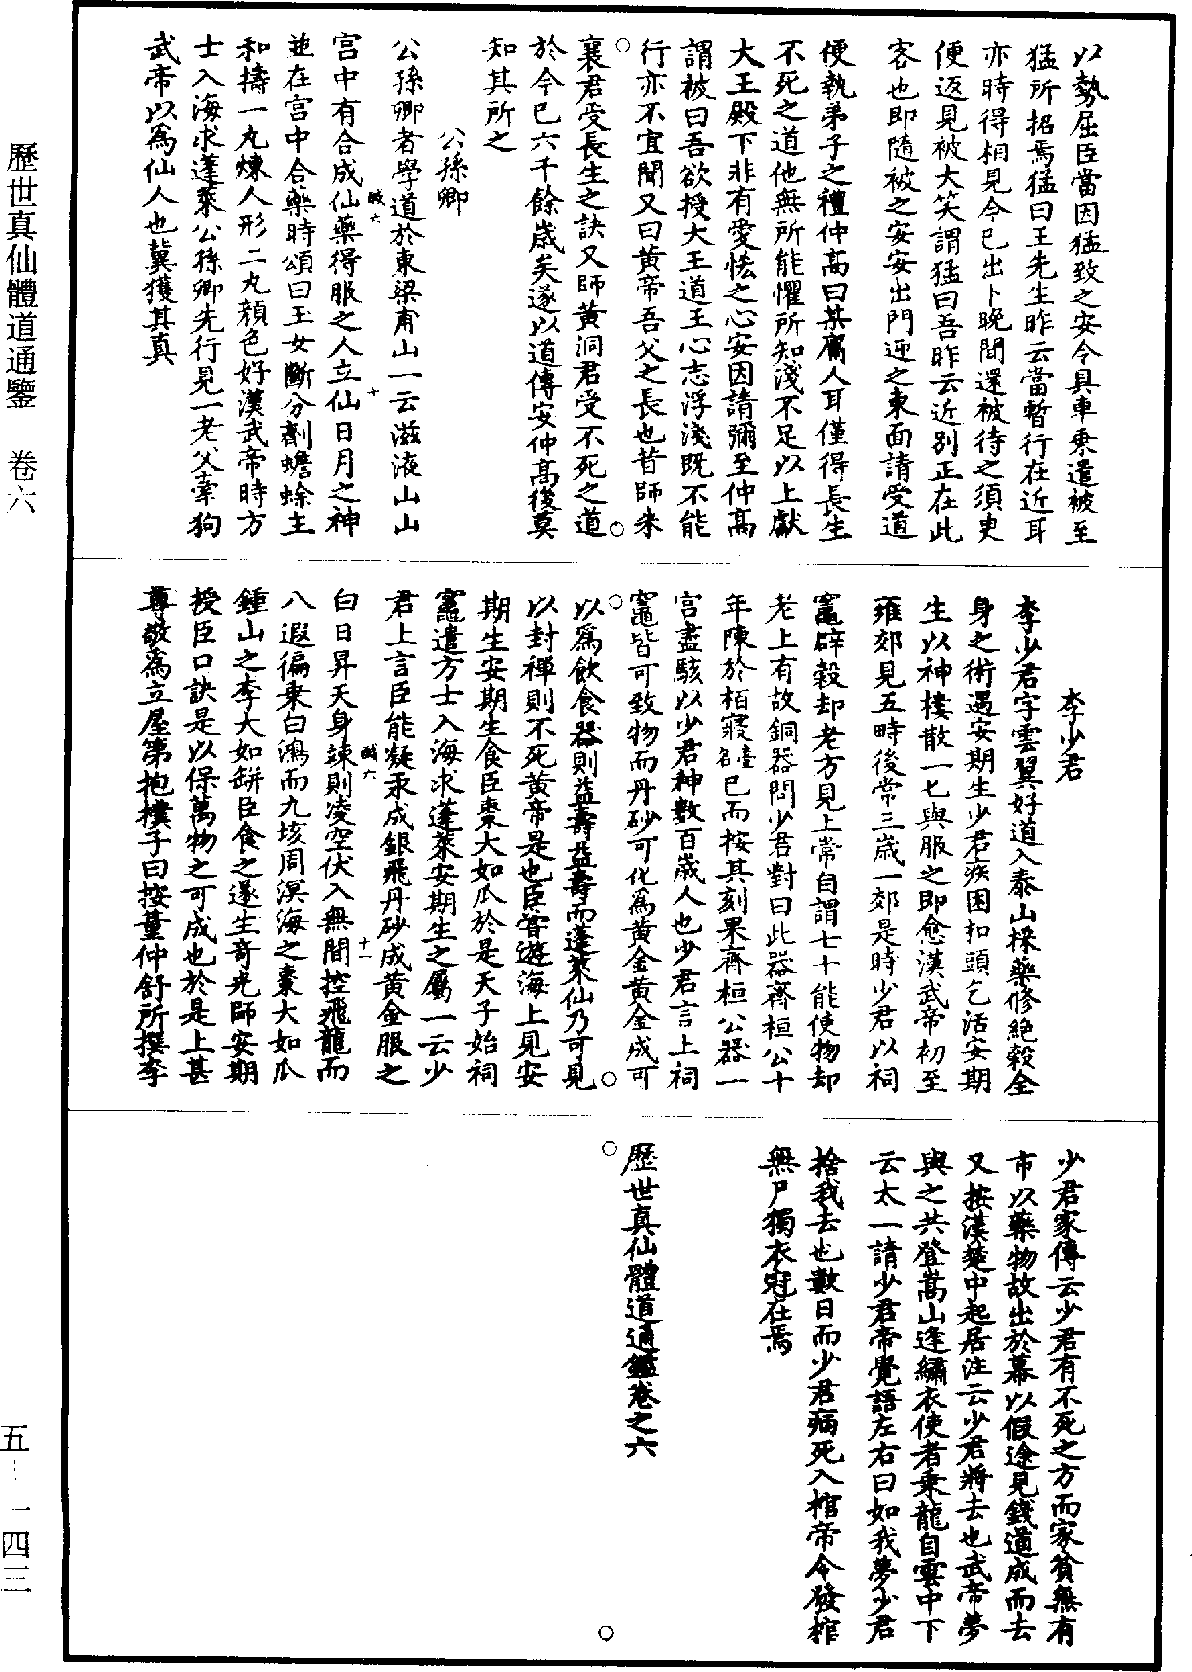 歷世真仙體道通鑒　卷六
以勢屈臣當因猛致之安令具車乘遣被至
猛所招焉猛曰王先生昨云當暫行在近耳
亦時得相見今已出卜晚間還被待之須臾
便返見被大笑謂猛曰吾昨云近別正在此
客也即隨被之安安出門迎之東面請受道
便執弟子之禮仲高曰某膚人耳僅得長生
不死之道他無所能懼所知淺不足以上獻
大王殿下非有愛怯之心安因請彌至仲高
謂被曰吾欲授大王道王心志浮淺既不能
行亦不宜聞又曰黃帝吾父之長也昔師朱
襄君受長生之訣又師黃洞君受不死之道
於今已六千餘歲矣遂以道傳安仲高後莫
知其所之
公孫卿
公孫卿者學道於東梁甫山一云滋液山山
宮中有合成仙藥得服之人立仙日月之神
並在宮中合藥時頌曰玉女斷分劑蟾蜍主
和擣一丸煉人形二丸顏色好漢武帝時方
士入海求蓬萊公孫卿先行見一老父牽狗
武帝以為仙人也冀獲其真
李少君
李少君字雲翼好道入泰山採藥修絕穀全
身之術遇安期生少君疾困扣頭乞活安期
生以神樓散一匕與服之即愈漢武帝初至
雍郊見五畤後常三歲一郊是時少君以祠
竈辟穀却老方見上常自謂七十能使物却
老上有故銅器問少君對曰此器齊桓公十
年陳於栢寢臺名已而按其刻果齊桓公器一
宮盡駭以少君神數百歲人也少君言上祠
竈皆可致物而丹砂可化為黃金黃金成可
以為飲食器則益壽益壽而蓬萊仙乃可見
以封禪則不死黃帝是也臣嘗遊海上見安
期生安期生食臣棗大如瓜於是天子始祠
竈遣方士入海求蓬萊安期生之屬一云少
君上言臣能凝汞成銀飛丹砂成黃金服之
白日昇天身竦則凌空伏入無間控飛龍而
八遐徧乘白鴻而九垓周溟海之棗大如瓜
鍾山之李大如缾臣食之遂生奇光師安期
授臣口訣是以保萬物之可成也於是上甚
尊敬為立屋第抱樸子曰按董仲舒所撰李
少君家傳云少君有不死之方而家貧無有
市以藥物故出於幕以假途見錢道成而去
又按漢楚中起居注云少君將去也武帝夢
與之共登嵩山逢繡衣使者乘龍自雲中下
云太一請少君帝覺語左右曰如我夢少君
捨我去也數日而少君病死入棺帝令發棺
無尸獨衣冠在焉
歷世真仙體道通鑑卷之六
五-一四三